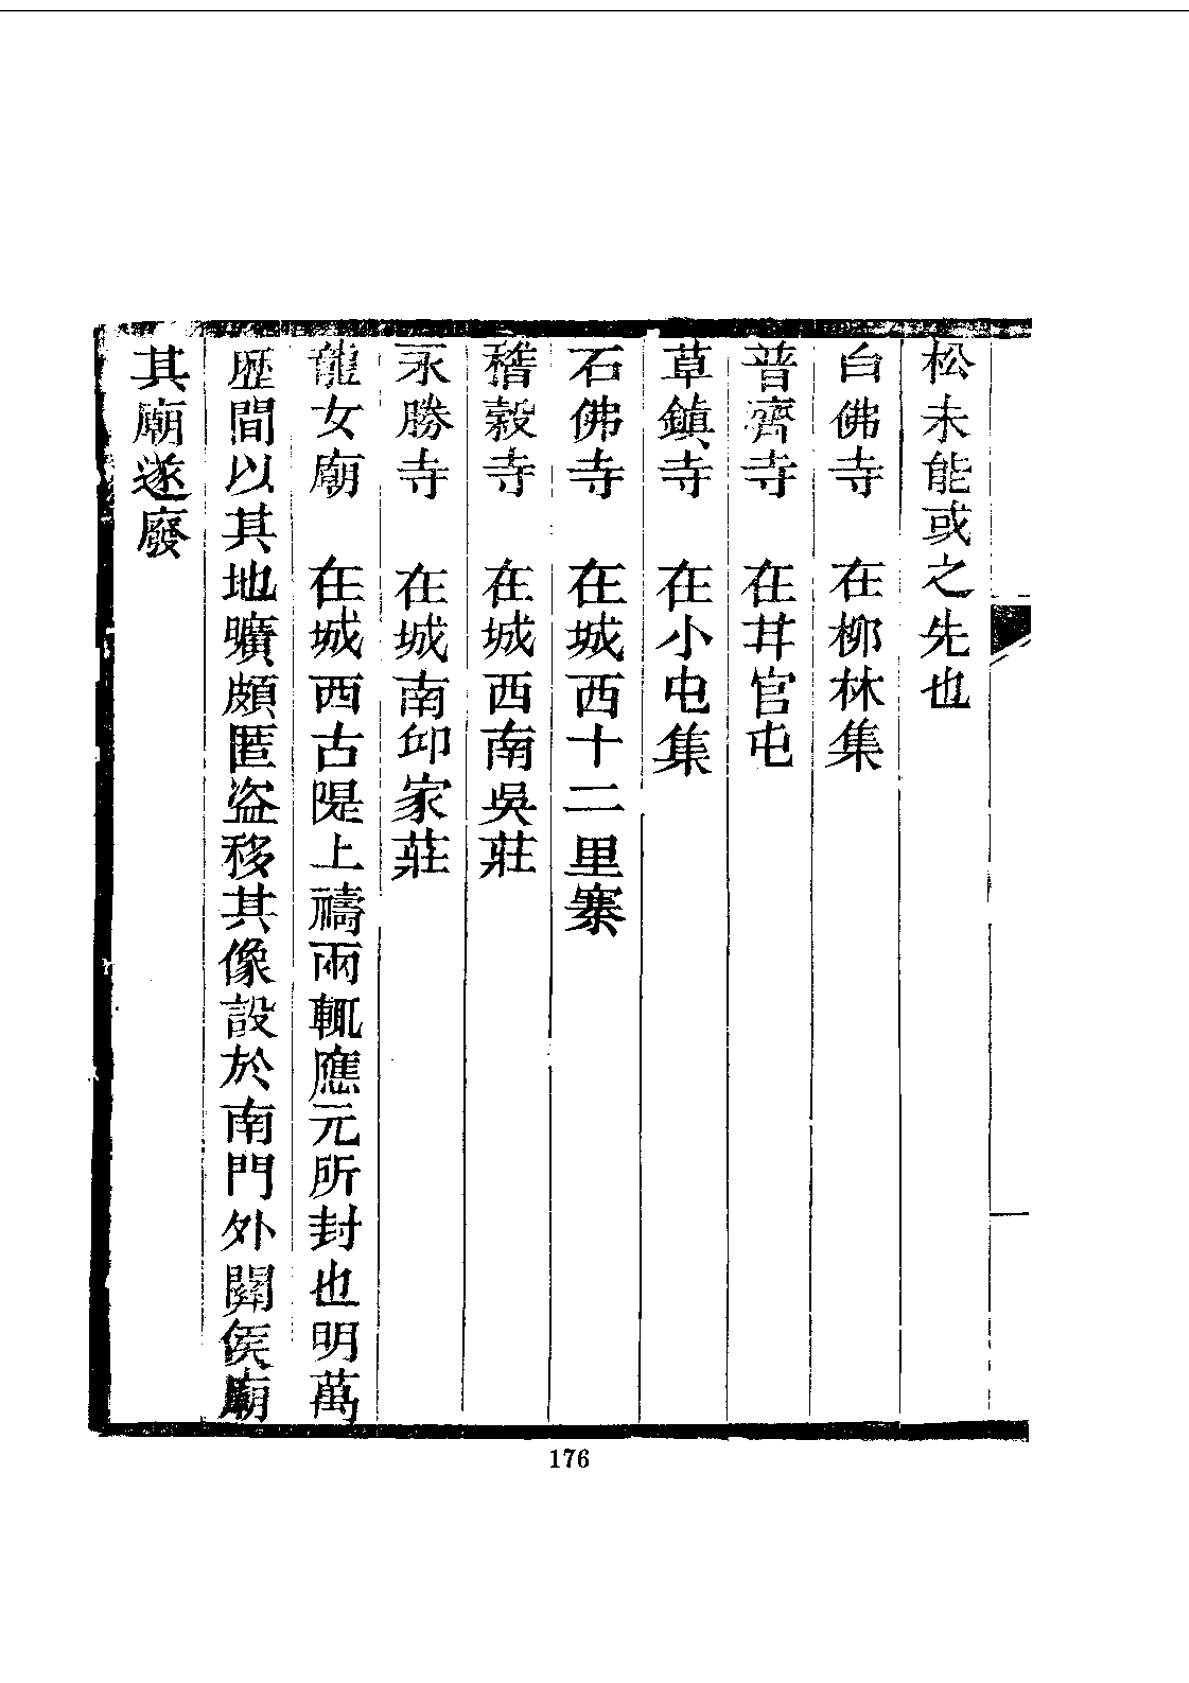 松未能或之先也
白佛寺　在柳林集
普濟寺　在甘官屯
草鎮寺　在小屯集
石佛寺　在城西十二里寨
稽穀寺　在城西南吳莊
永勝寺　在城南邱家莊
龍女廟　在城西古隄上禱雨輒應元所封也明萬
歷間以其地曠頗匿盜移其像設於南門外關侯廟
其廟遂廢
176